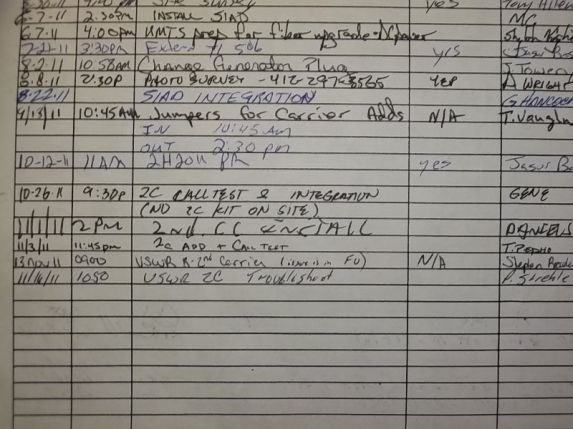 yes Tony Allen
6-7-11 2:30pm INSTALL SIAD MG
6-7-11 4:00pm UMTS prep for fiber upgrade-DC power
7-21-11 3:30PM yes
8-2-11 10:58AM Change Generator Plug J Towery
8-8-11 2:30P PHOTO SURVEY - 412-297-8565 YEP A WRIGHT
8-22-11 SIAD INTEGRATION G HANCOCK
9/13/11 10:45AM Jumpers for Carrier Adds N/A T. Vaughn
IN 10:45 Am
OUT 2:30 pm
10-12-11 11AM yes
10-26-11 9:30p 2C CALL TEST & INTEGRATION GENE
(NO 2C KIT ON SITE)
11/1/11 2 PM 2nd CC INSTALL DANIELS
11/3/11 11:45pm 2c ADD + CALL TEST
13 NOV 11 0900 USWR R-2nd Carrier (issue is in FU) N/A Stephen
11/16/11 1050 USWR 2C Troubleshoot P. Strehle